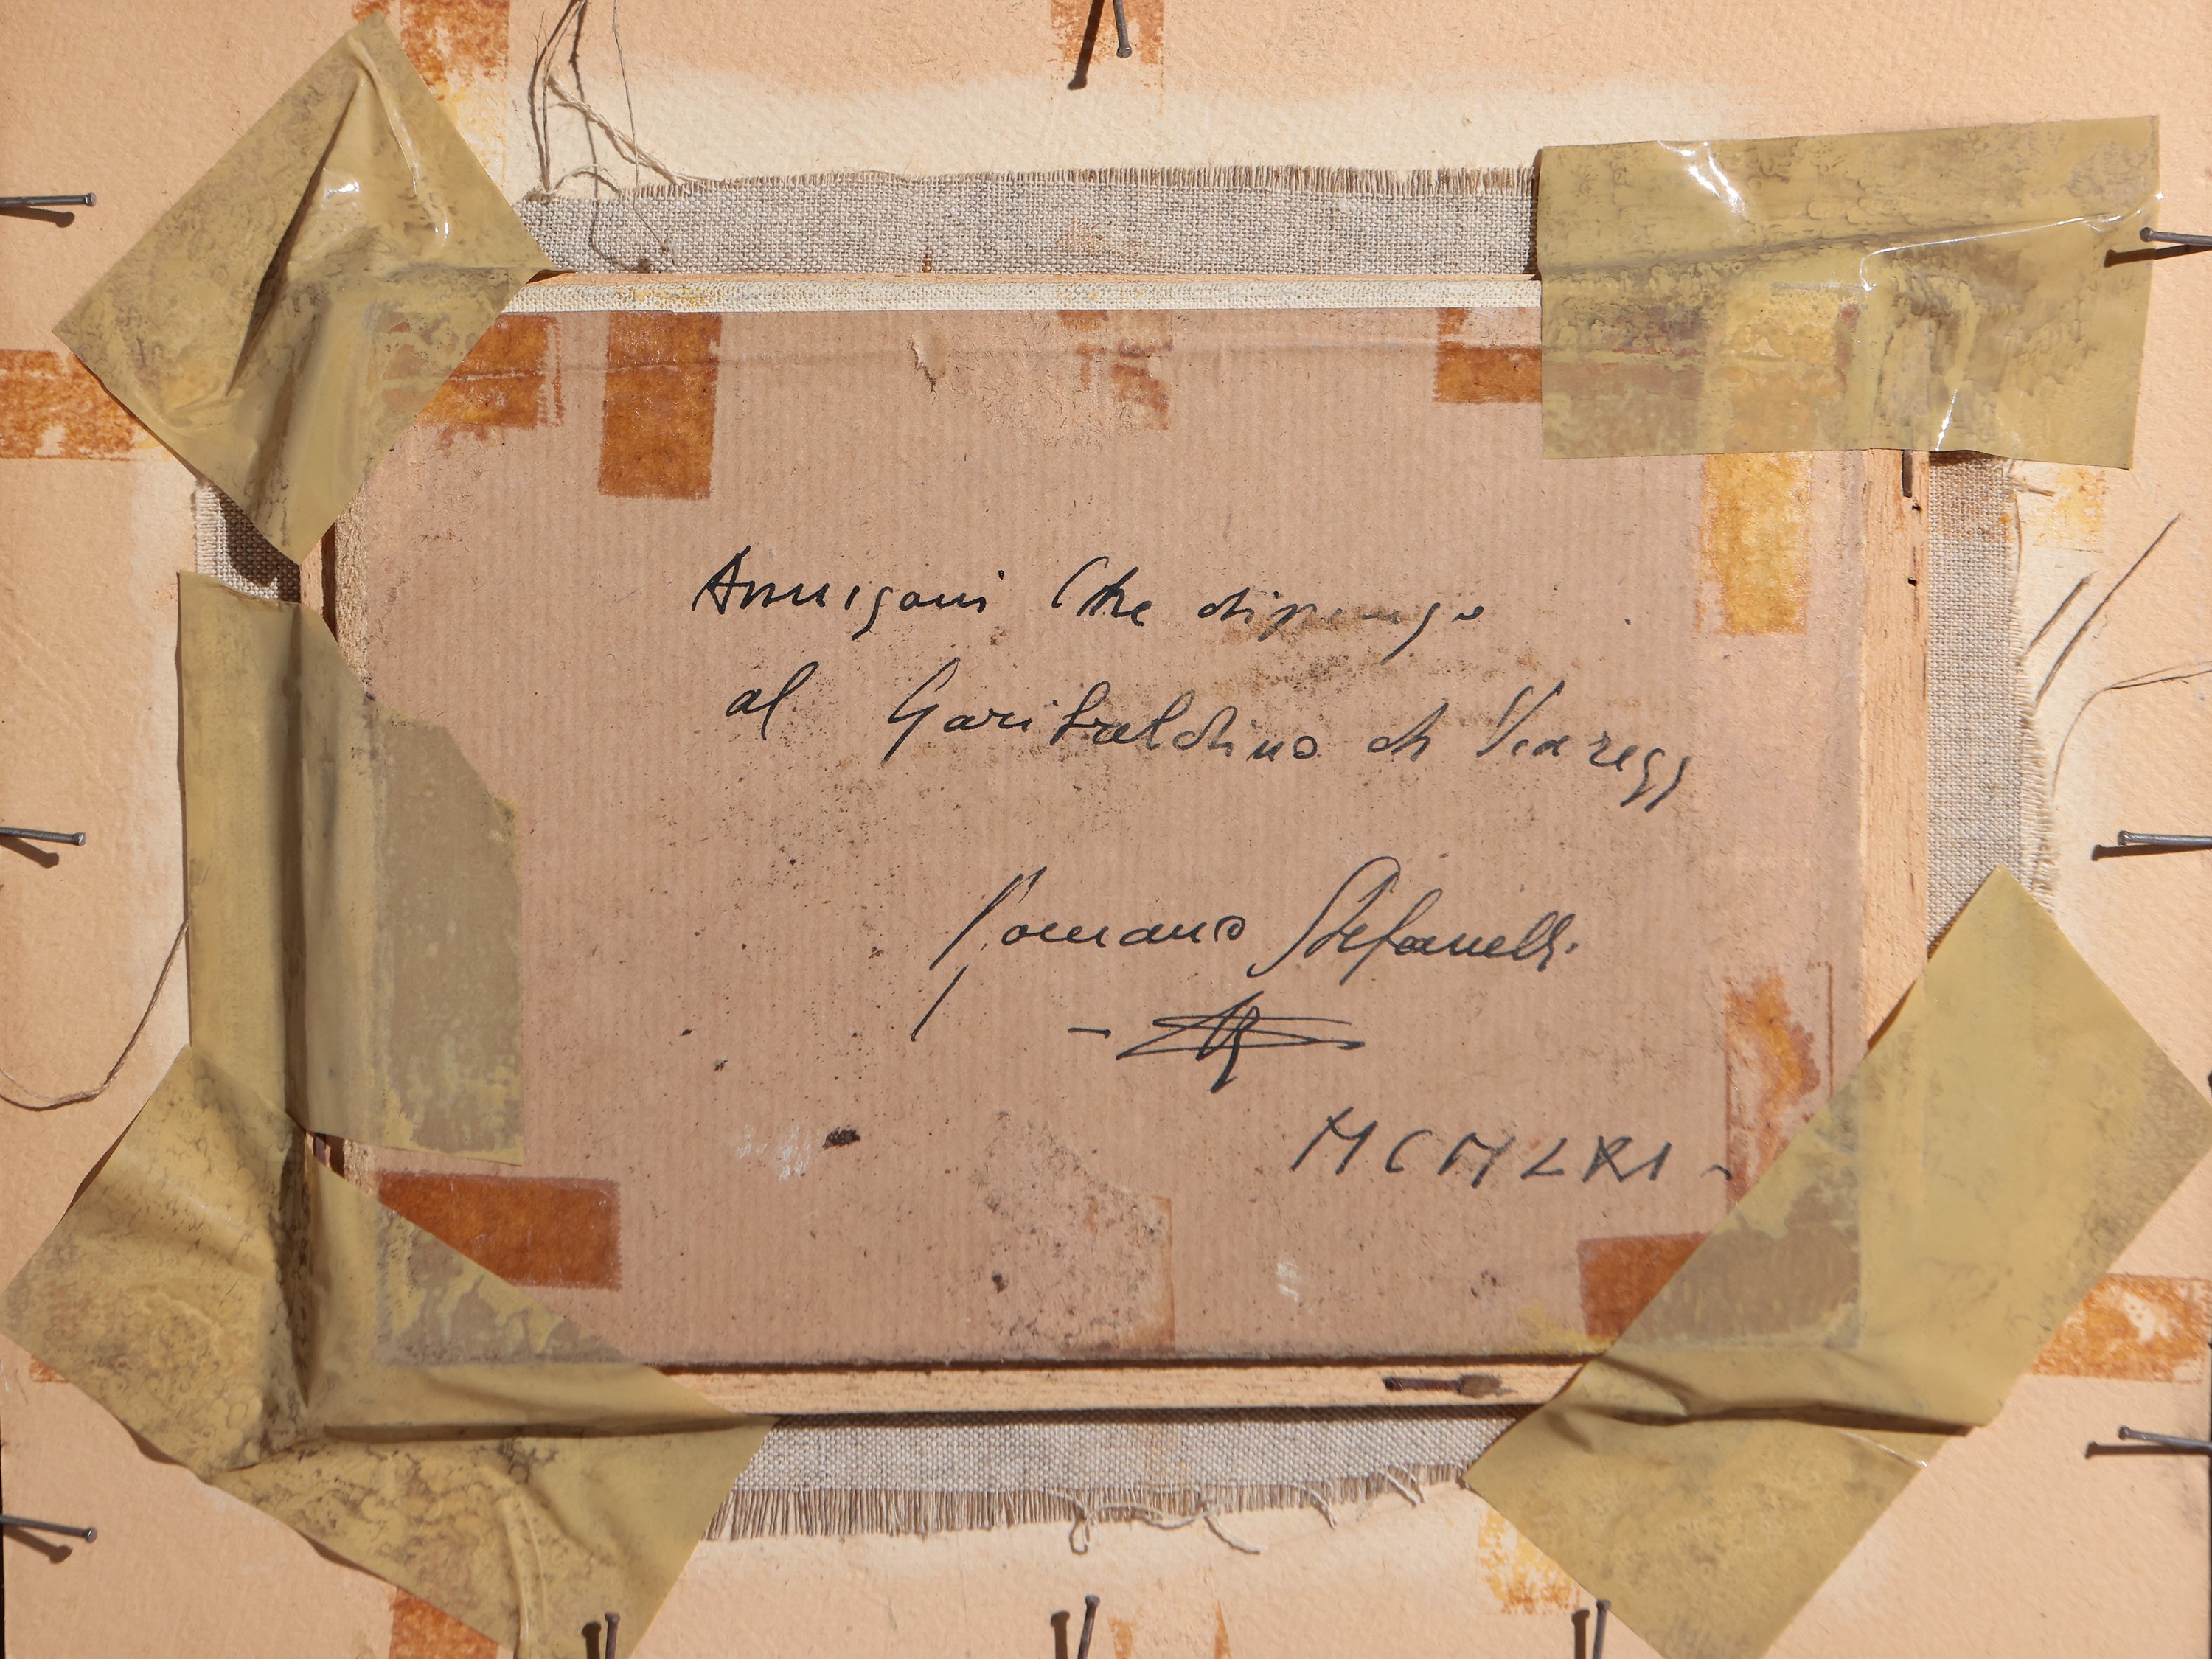 Annigoni che dipinge
al Garibaldino di Viaregg
Romano Stefanelli
MCMLXXI -